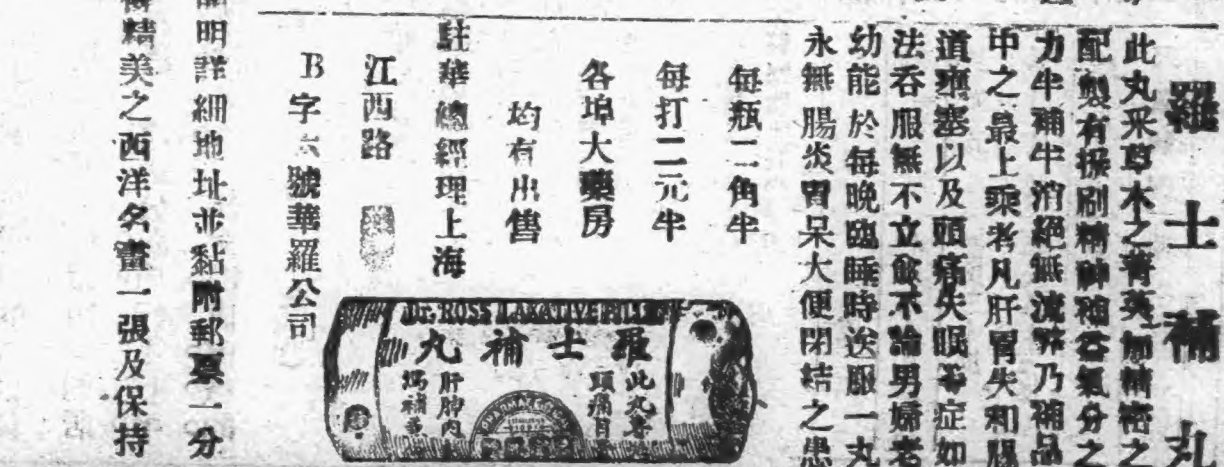 羅士補丸
此丸采草木之菁英加精密之
配製有振刷精神補吞氣分之
力半補半消絕無流弊乃補品
中之最上乘者凡肝胃失和腸
道壅塞以及頭痛失眠等症如
法吞服無不立愈不論男婦老
幼能於每晚臨睡時送服一丸
永無腸炎胃呆大便閉結之患
每瓶二角半
每打二元半
各埠大藥房
均有出售
駐華總經理上海
江西路
B字六號華羅公司
DR. ROSS LAXATIVE PILLS
羅士補丸
此丸專
頭痛目
肝脾內
明詳細地址並黏附郵票一分
精美之西洋名畫一張及保持